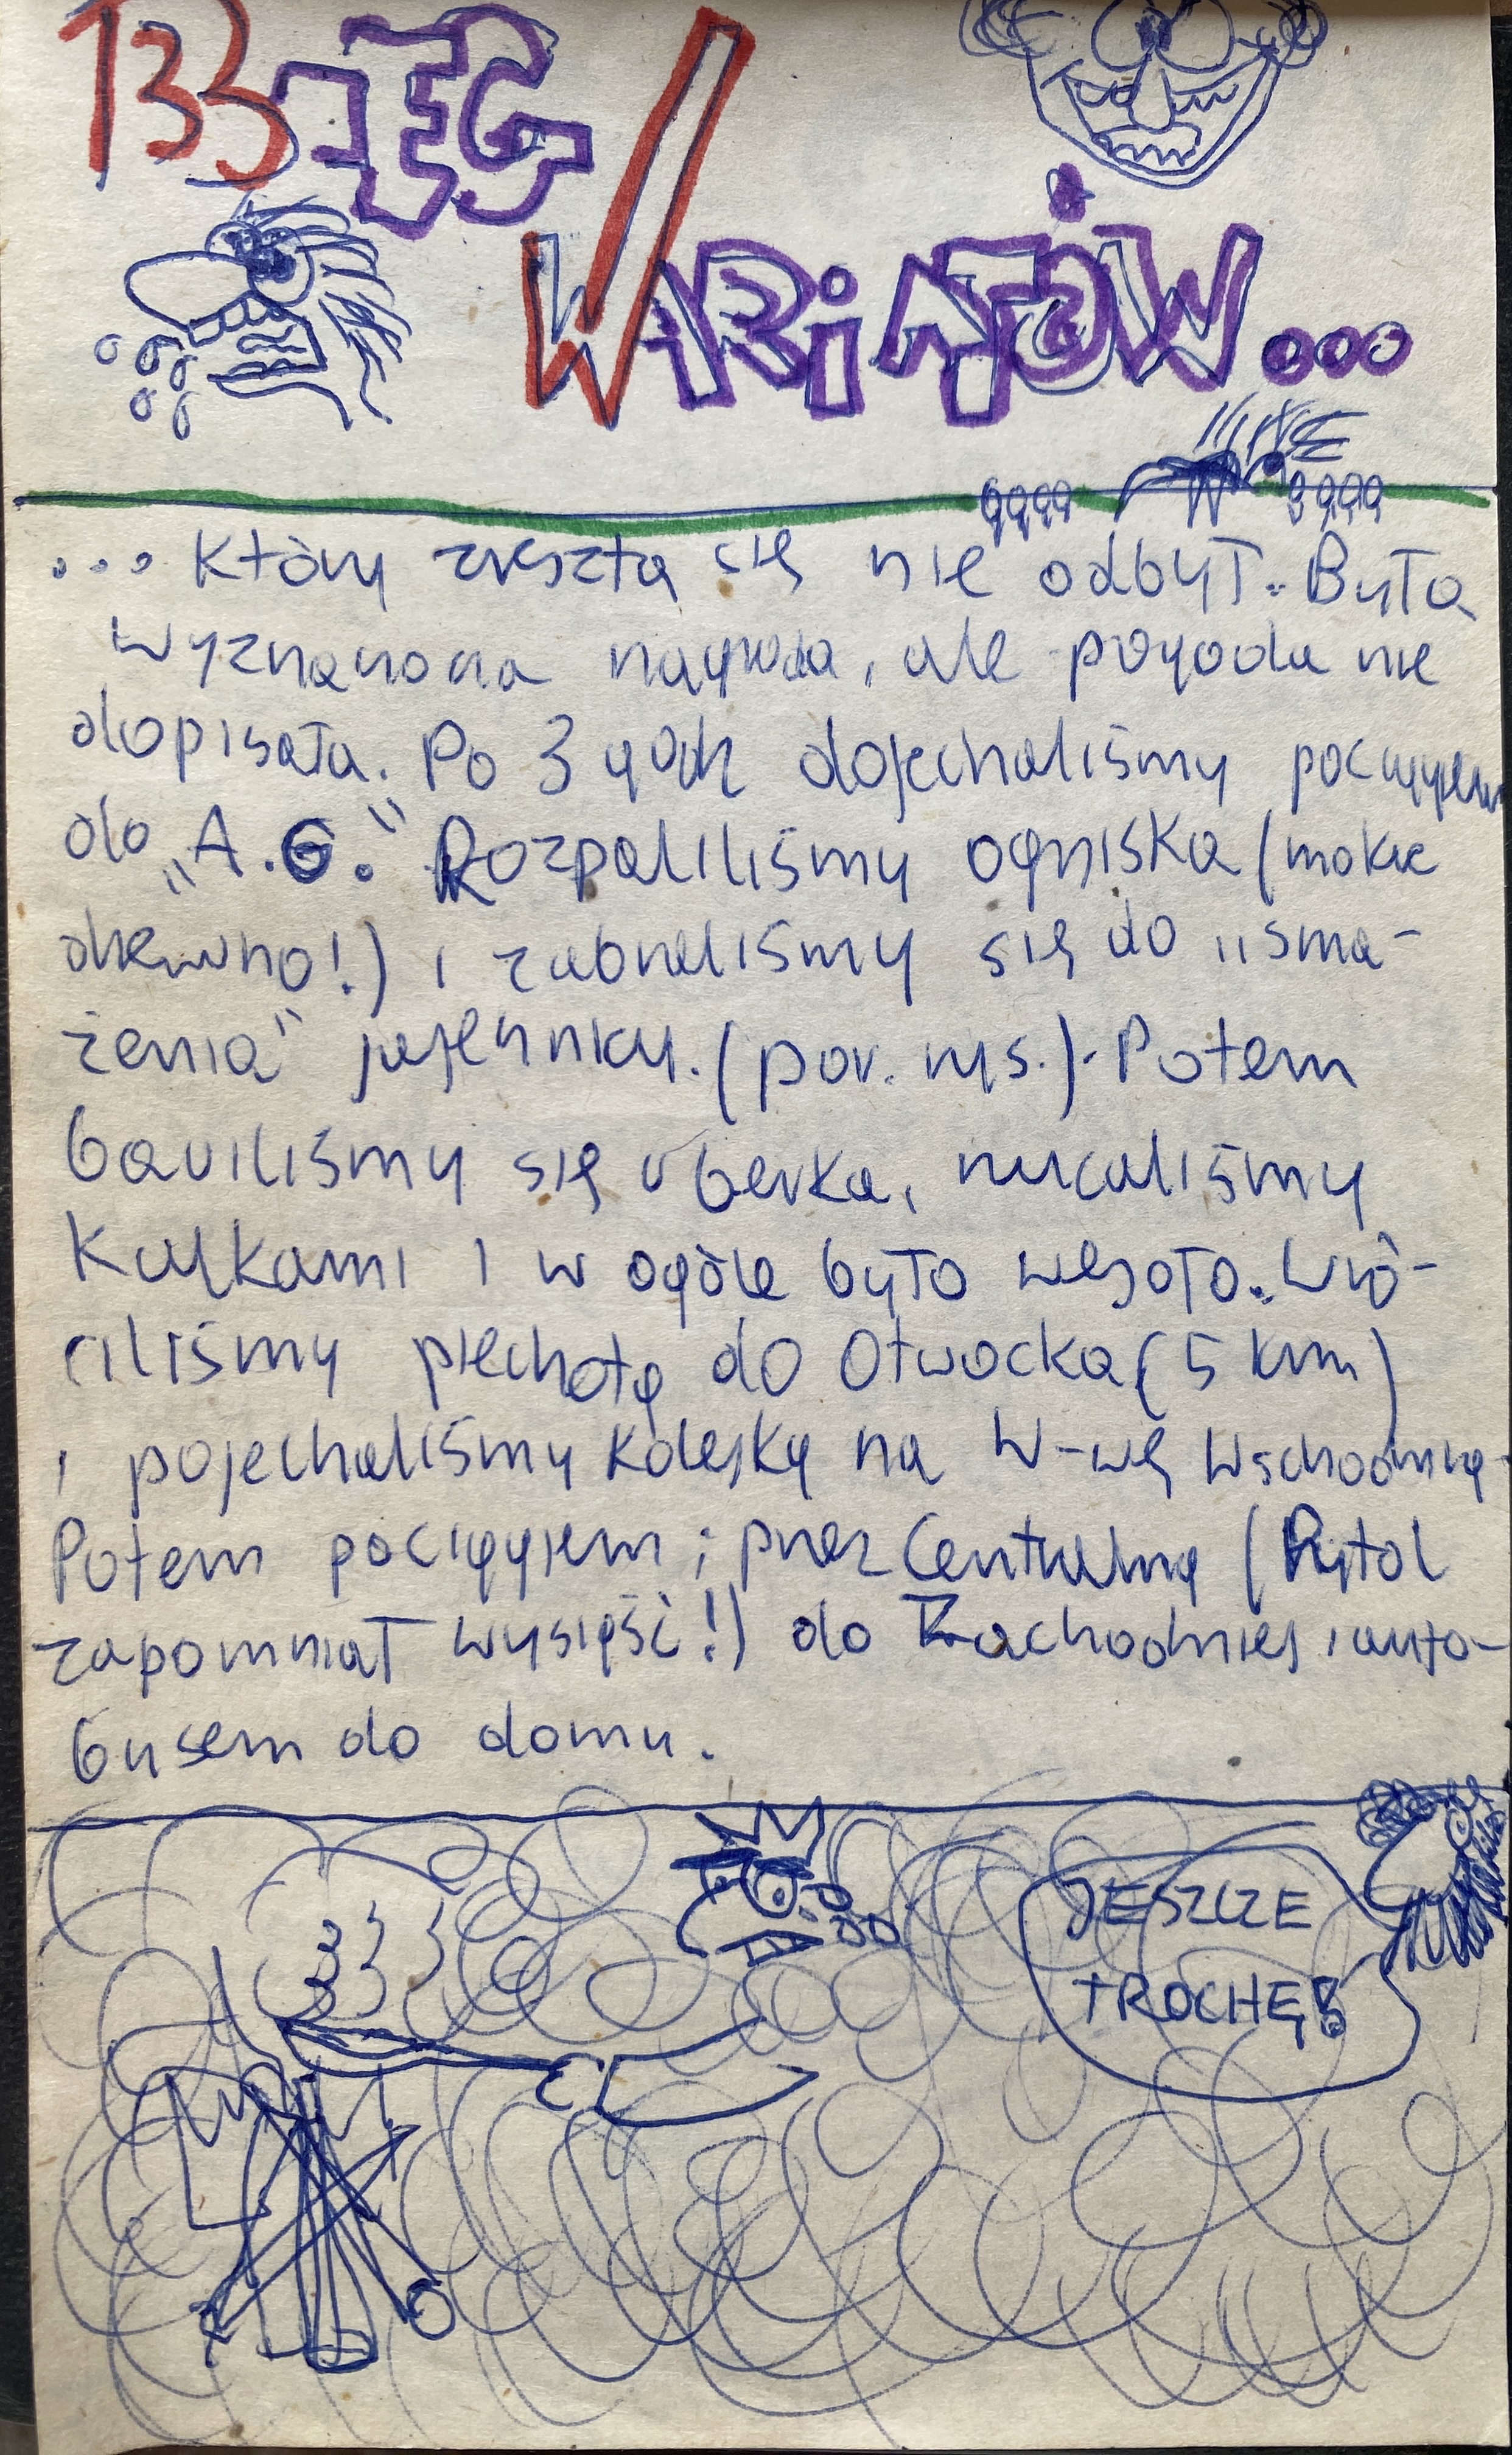 133-EG
WARIATÓW...
... który zresztą się nie odbył. Była
wyznaczona nagroda, ale pogoda nie
dopisała. Po 3 godz dojechaliśmy pociągiem
do „A.G." Rozpaliliśmy ogniska (mokre
drewno!) i zabraliśmy się do „sma-
żenia" jajecznicy. (por. rys.). Potem
bawiliśmy się v berka, rzucaliśmy
kulkami i w ogóle było wesoło. Wró-
ciliśmy piechotą do Otwocka (5 km)
i pojechaliśmy kolejką na W-wę Wschodnią.
Potem pociągiem; przez Centralną (Pytol
zapomniał wysiąść!) do Zachodniej i auto-
busem do domu.
JESZCZE
TROCHĘ!